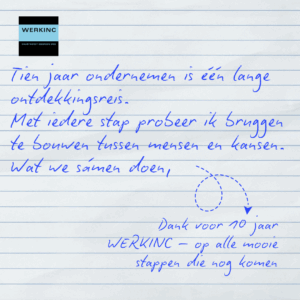 WERKINC
Tien jaar ondernemen is één lange
ontdekkingsreis.
Met iedere stap probeer ik bruggen
te bouwen tussen mensen en kansen.
Wat we sámen doen,
Dank voor 10 jaar
WERKINC – op alle mooie
stappen die nog komen